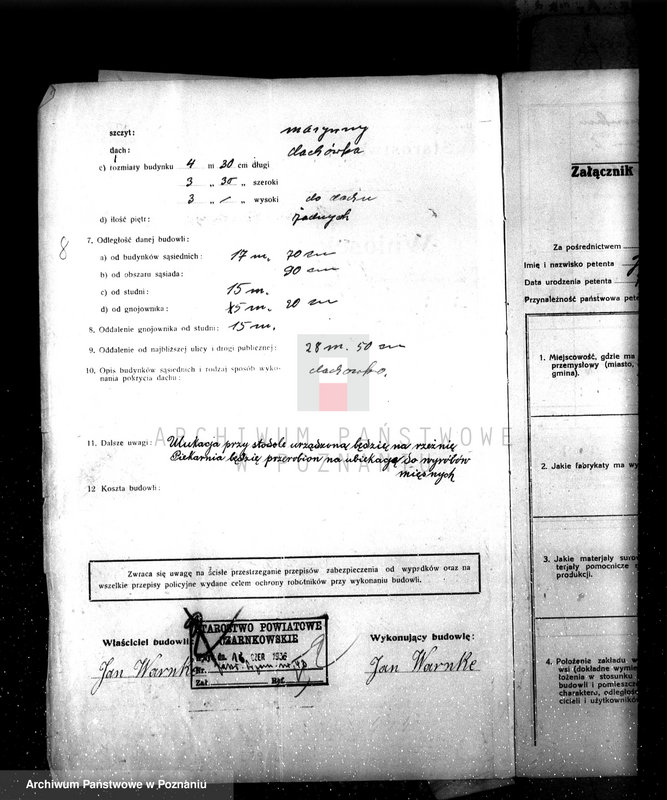 szczyt: masywny
dach: dachówka
c) rozmiary budynku 4 m 30 cm długi
3 „ 30 „ szeroki
3 „ / „ wysoki do dachu
d) ilość pięter: żadnych
8
7. Odległość danej budowli:
a) od budynków sąsiednich: 17 m. 70 cm
b) od obszaru sąsiada: 90 cm
c) od studni: 15 m.
d) od gnojownika: 15 m. 20 cm
8. Oddalenie gnojownika od studni: 15 m.
9. Oddalenie od najbliższej ulicy i drogi publicznej: 28 m. 50 cm
10. Opis budynków sąsiednich i rodzaj sposób wyko-
nania pokrycia dachu: dachówka.
ARCHIWUM PAŃSTWOWE
W POZNANIU
11. Dalsze uwagi: Ubikacja przy stodole urządzona będzie na rzeźnię
Piekarnia będzie przerobion na ubikację do wyrobów
mięsnych
12 Koszta budowli:
Zwraca się uwagę na ściśle przestrzeganie przepisów zabezpieczenia od wypadków oraz na
wszelkie przepisy policyjne wydane celem ochrony robotników przy wykonaniu budowli.
Właściciel budowli:
Jan Warnke
STAROSTWO POWIATOWE
CZARNKOWSKIE
CZER 1936
Nr.
Zał.
Ref.
Wykonujący budowlę:
Jan Warnke
Załącznik
Za pośrednictwem
Imię i nazwisko petenta
Data urodzenia petenta
Przynależność państwowa pete
1. Miejscowość, gdzie ma
przemysłowy (miasto,
gmina).
2. Jakie fabrykaty ma wy
3. Jakie materjały suro
terjały pomocnicze
produkcji.
4. Położenie zakładu w
wsi (dokładne wymie
łożenia w stosunku
budowli i pomieszcze
charakteru, odległość
cicieli i użytkowników
Archiwum Państwowe w Poznaniu